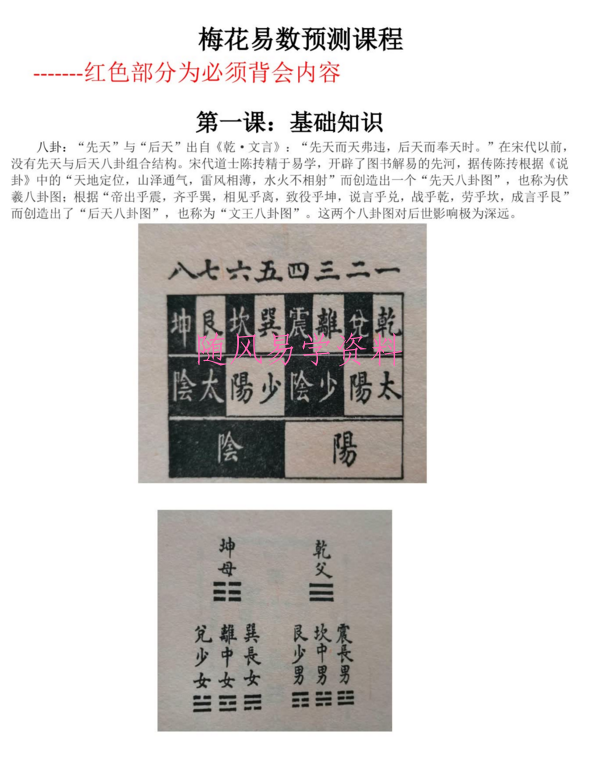 梅花易数预测课程
-------红色部分为必须背会内容
第一课：基础知识
八卦：“先天”与“后天”出自《乾·文言》：“先天而天弗违，后天而奉天时。”在宋代以前，
没有先天与后天八卦组合结构。宋代道士陈抟精于易学，开辟了图书解易的先河，据传陈抟根据《说
卦》中的“天地定位，山泽通气，雷风相薄，水火不相射”而创造出一个“先天八卦图”，也称为伏
羲八卦图；根据“帝出乎震，齐乎巽，相见乎离，致役乎坤，说言乎兑，战乎乾，劳乎坎，成言乎艮”
而创造出了“后天八卦图”，也称为“文王八卦图”。这两个八卦图对后世影响极为深远。
八七六五四三二一
坤艮坎巽震離兌乾
随风易学资料
陰太陽少陰少陽太
陰 陽
乾父
坤母
震長男
坎中男
艮少男
巽長女
離中女
兌少女